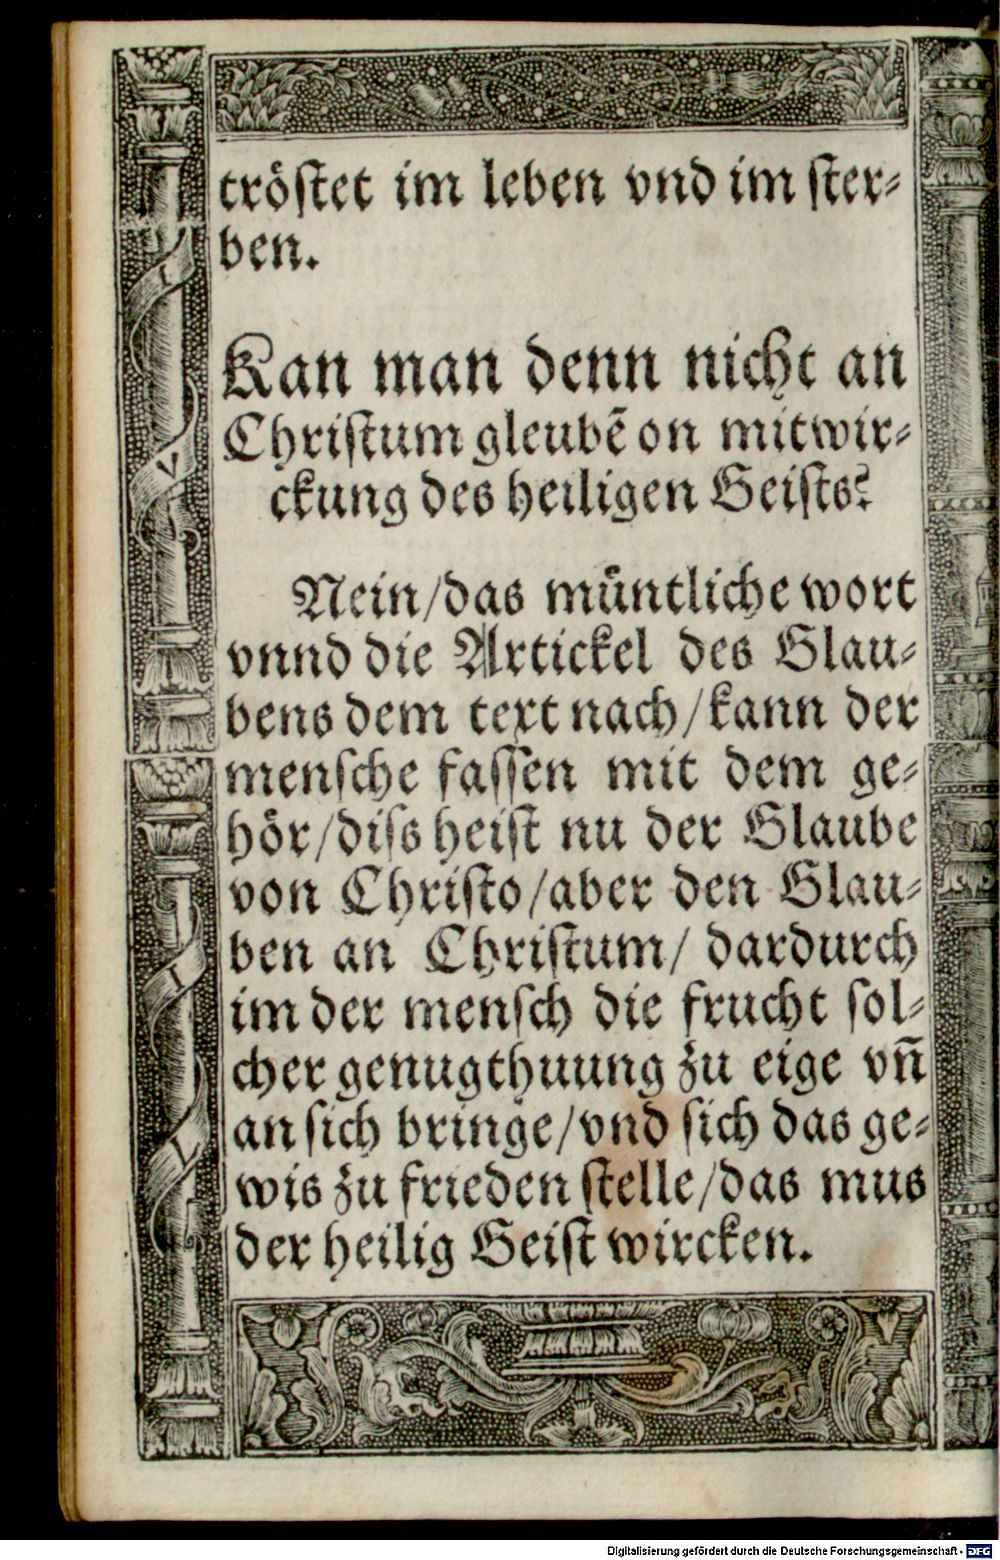 tröſtet im leben vnd im ſter⸗
ben.
Kan man denn nicht an
Chriſtum gleubē on mitwir⸗
ckung des heiligen Geiſts?
Nein/das müntliche wort
vnnd die Artickel des Glau⸗
bens dem text nach/kann der
menſche faſſen mit dem ge⸗
hör/diſs heiſt nu der Glaube
von Chriſto/aber den Glau⸗
ben an Chriſtum/ dardurch
im der menſch die frucht ſol⸗
cher genugthuung zu eige vn̄
an ſich bringe/vnd ſich das ge⸗
wis zu frieden ſtelle/das mus
der heilig Geiſt wircken.
Digitalisierung gefördert durch die Deutsche Forschungsgemeinschaft - DFG